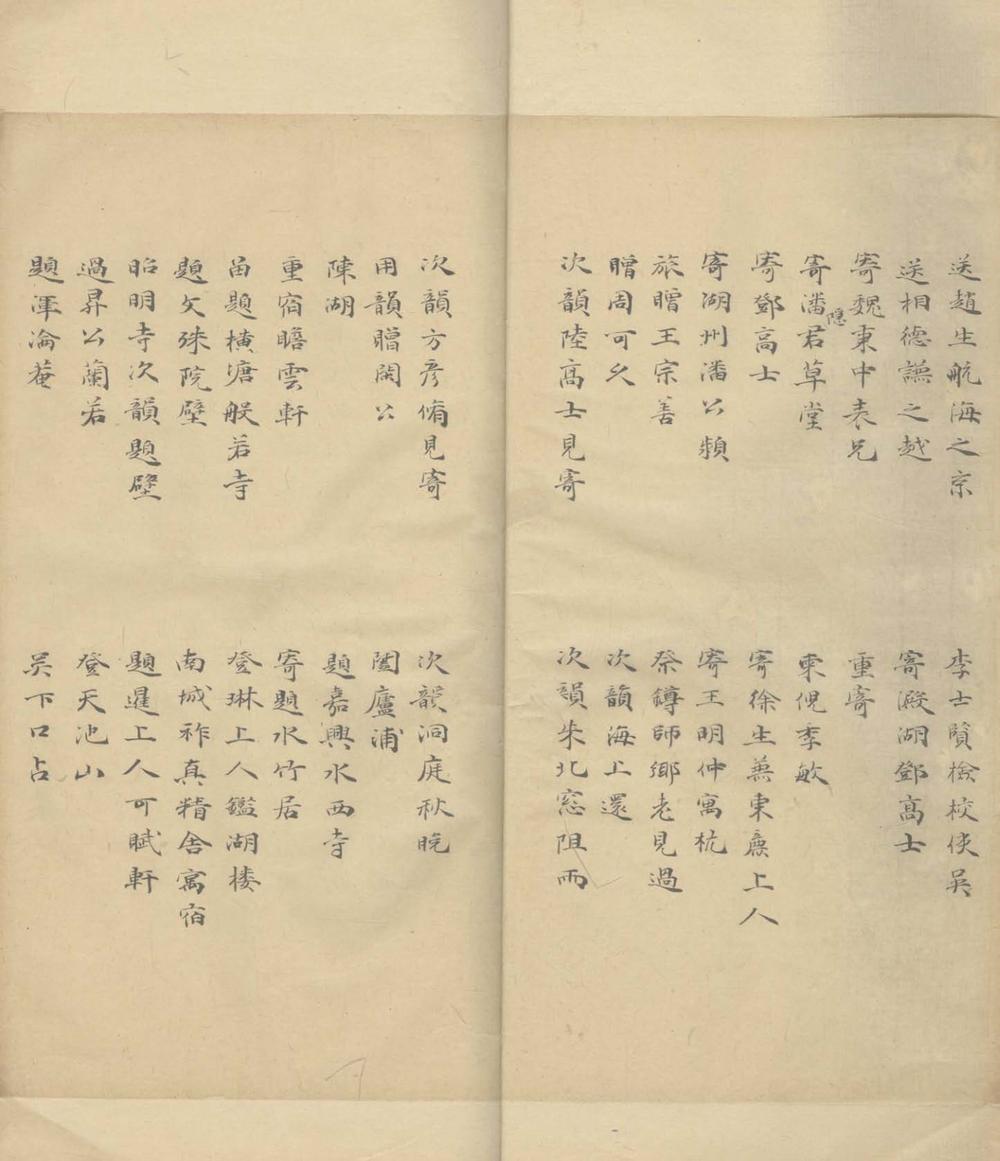 送趙生航海之京
李士賢檢校使吳
送相德謙之越
寄澱湖鄧高士
寄魏秉中表兄
重寄
寄潘隱君草堂
柬倪季敏
寄鄧高士
寄徐生兼柬上人
寄湖州潘公頻
寄王明仲寓杭
旅贈王宗善
鑄師鄉老見過
贈周可久
次韻海上還
次韻陸高士見寄
次韻朱北窓阻雨
次韻方彥脩見寄
次韻洞庭秋晚
用韻贈閑公
闔廬浦
陳湖
題嘉興水西寺
重宿瞻雲軒
寄題水竹居
畱題橫塘般若寺
登琳上人鑑湖楼
題文殊院壁
南城祚真精舍寓宿
昭明寺次韻題壁
題暹上人可賦軒
過昇公蘭若
登天池山
題渾淪菴
吴下口占